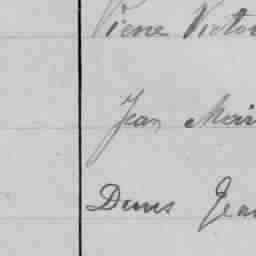 Pierre Victor
Jean Mari
Denis Jean